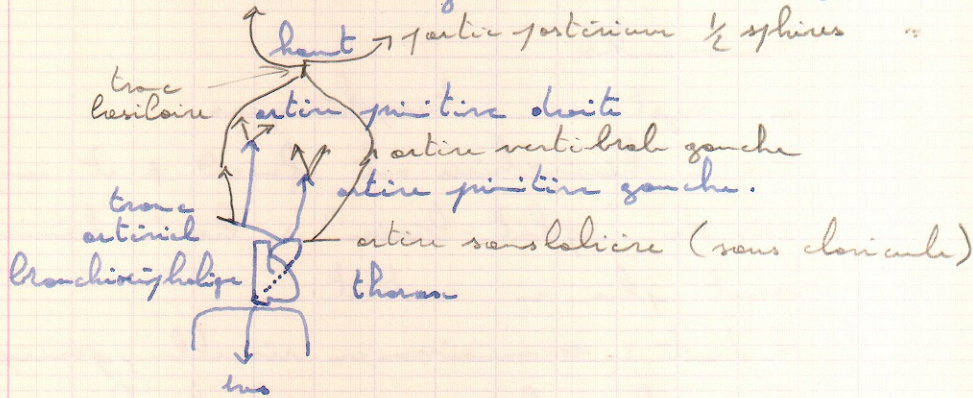 haut partie postérieure ½ sphères
tronc
basilaire
artère primitive droite
artère vertébrale gauche
artère primitive gauche.
tronc
artériel
brachiocéphalique
artère sousclavière (sous clavicule)
thorax
bas